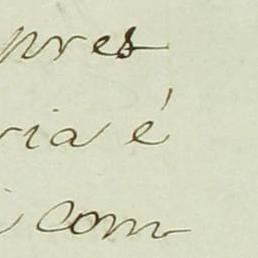 pres
ria é
com